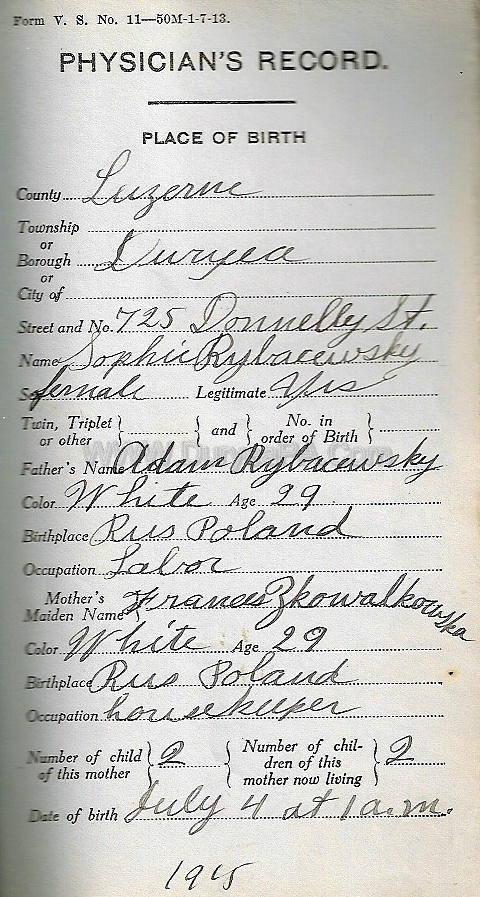 Form V. S. No. 11—50M-1-7-13.
PHYSICIAN'S RECORD.
PLACE OF BIRTH
County Luzerne
Township
or
Borough Duryea
or
City of
Street and No. 725 Donnelly St.
Name Sophie Rybacewsky
Sex female Legitimate Yes
Twin, Triplet or other } { and } No. in order of Birth }
Father's Name Adam Rybacewsky
Color White Age 29
Birthplace Rus Poland
Occupation Labor
Mother's Maiden Name } Frances Zkowalkowska
Color White Age 29
Birthplace Rus Poland
Occupation housekeeper
Number of child of this mother } 2 { Number of children of this mother now living } 2
Date of birth July 4 at 1 a.m.
1915